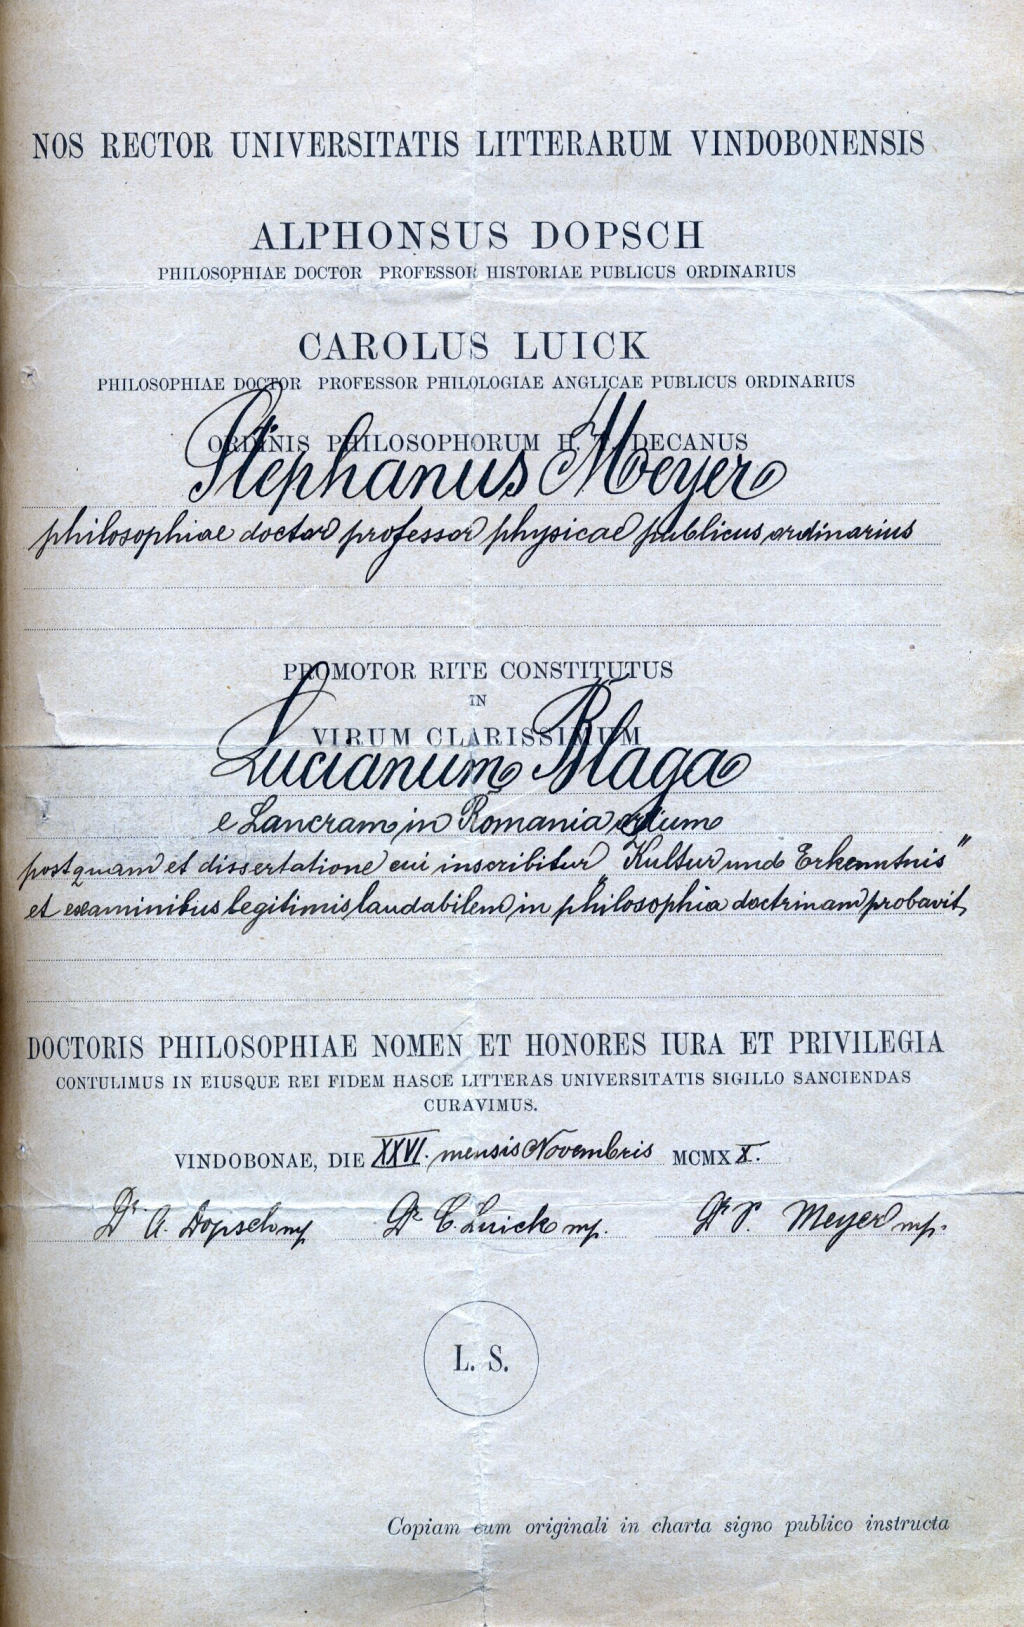 NOS RECTOR UNIVERSITATIS LITTERARUM VINDOBONENSIS
ALPHONSUS DOPSCH
PHILOSOPHIAE DOCTOR PROFESSOR HISTORIAE PUBLICUS ORDINARIUS
CAROLUS LUICK
PHILOSOPHIAE DOCTOR PROFESSOR PHILOLOGIAE ANGLICAE PUBLICUS ORDINARIUS
ORDINIS PHILOSOPHORUM H. T. DECANUS
Stephanus Meyer
philosophiae doctor professor physicae publicus ordinarius
PROMOTOR RITE CONSTITUTUS
IN
VIRUM CLARISSIMUM
Lucianum Blaga
e Lancram in Romania
postquam et dissertatione cui inscribitur „Kultur und Erkenntnis"
et examinibus legitimis laudabilem in philosophia doctrinam probavit,
DOCTORIS PHILOSOPHIAE NOMEN ET HONORES IURA ET PRIVILEGIA
CONTULIMUS IN EIUSQUE REI FIDEM HASCE LITTERAS UNIVERSITATIS SIGILLO SANCIENDAS
CURAVIMUS.
VINDOBONAE, DIE XXVI. mensis Novembris MCMXX.
Dr. A. Dopsch mp Dr C. Luick mp. Dr S. Meyer mp.
L. S.
Copiam cum originali in charta signo publico instructa